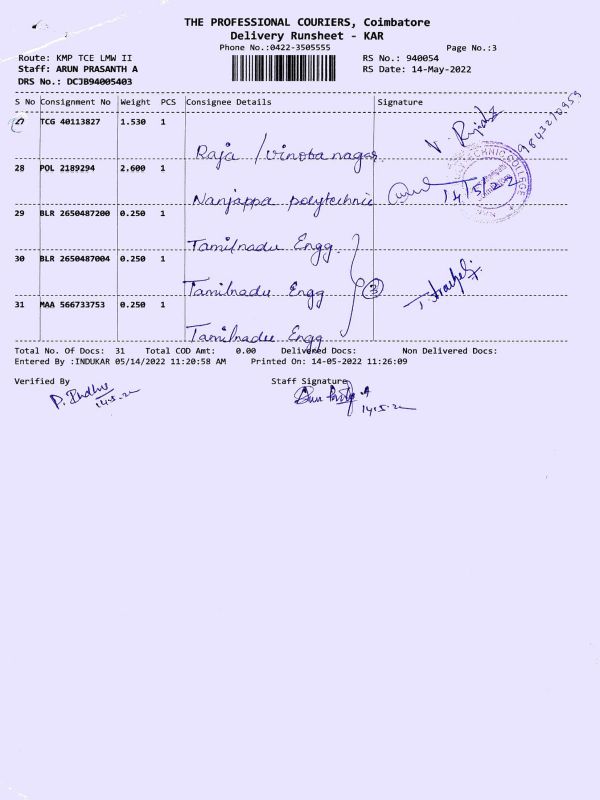 THE PROFESSIONAL COURIERS, Coimbatore
Delivery Runsheet - KAR
Phone No.:0422-3505555
Page No.:3
Route: KMP TCE LMW II
RS No.: 940054
Staff: ARUN PRASANTH A
RS Date: 14-May-2022
DRS No.: DCJB94005403
S No Consignment No Weight PCS Consignee Details Signature
27 TCG 40113827 1.530 1
Raja / vinoba nagar
9843210959
28 POL 2189294 2.600 1
Nanjappa polytechnic
14/5/22
29 BLR 2650487200 0.250 1
Tamilnadu Engg.
30 BLR 2650487004 0.250 1
Tamilnadu Engg
3
31 MAA 566733753 0.250 1
Tamilnadu Engg
Total No. Of Docs: 31 Total COD Amt: 0.00 Delivered Docs: Non Delivered Docs:
Entered By :INDUKAR 05/14/2022 11:20:58 AM Printed On: 14-05-2022 11:26:09
Verified By
Staff Signature
P. Indhu
14.5.22
14.5.22